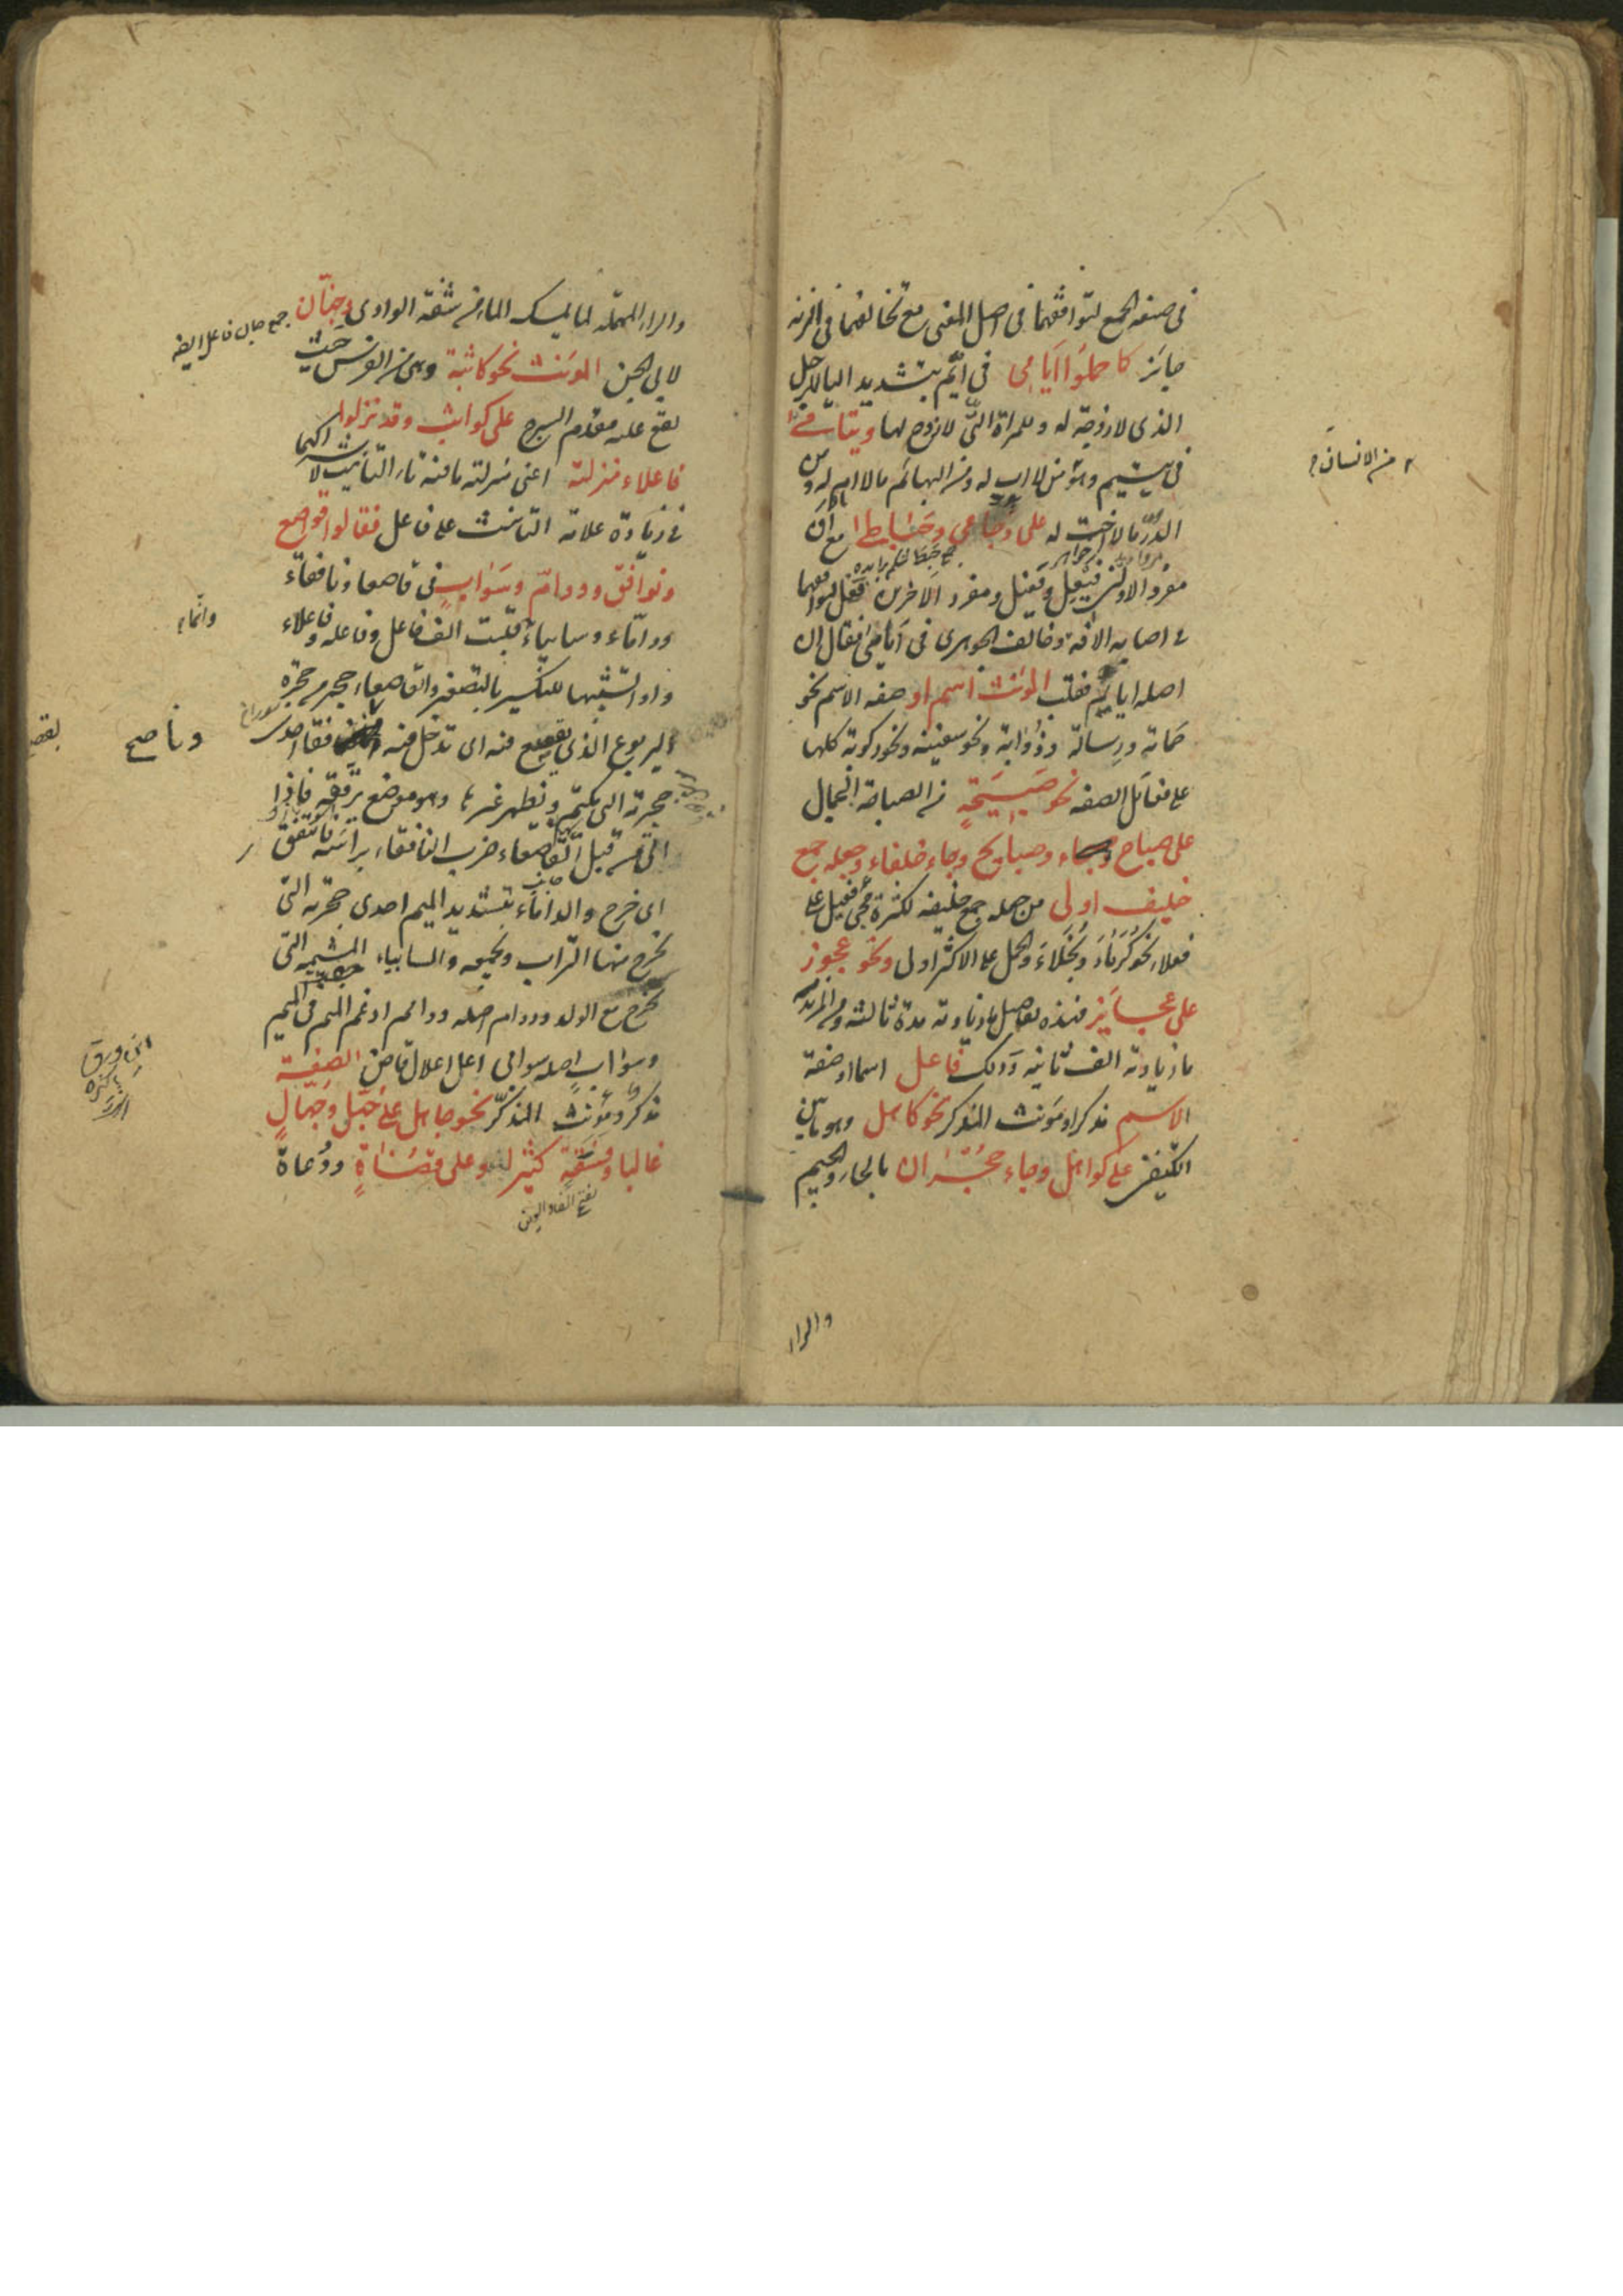 فى صيغة الجمع لتوافقهما فى اصل المعنى مع تخالفهما فى الزنة
جايز كما حملوا ايامى فى ايّم بتشديد اليا للرجل
الذى لا زوجة له وللمراة التى لا زوج لها ويتامى
فى يتيم وهو من لا اب له ومن البهائم ما لا ام له ومن
الدّر ما لا اخت له على وجاعى وحباطى مع ان
مفرد الاولين فيعل وفعيل ومفرد الاخرين فعل لتوافقهما
فى اصابه الافة وخالف الجوهرى فى ايامى فقال ان
اصله ايايم فقلب المؤنث اسم او صفه الاسم نحو
حمامة ورسالة وذؤابة ونحو سفينة ونحو ركوبة كلها
على فعائل الصفه نحو صبيحة من الصباحة الجمال
على صباح وصبايح وجاء خلفاء وجعله جمع
خليف اولى من جعله جمع خليفه لكثرة مجى فعيل على
فعلاء نحو كرماء وبخلاء والحمل على الاكثر اولى ونحو عجوز
على عجايز فهذه تفاصيل ما زيادته مدة ثالثه ومن المزيد
ما زيادته الف ثانيه وذلك فاعل اسما او صفة
الاسم مذكر او مؤنث المذكر نحو كاهل وهو ما بين
الكتفين على كواهل وجاء حجران بالحاء والجيم
من الانسان
والراء
والراء المهملة لما يمسك الماء من شفة الوادى وجنان
جمع جان فاعل ايضا
لابى الجن المؤنث نحو كاثبة وهى من الفرس حيث
يقع عليه مقدم السرج على كواثب وقد نزلوا
فاعلاء منزلته اعنى منزلة ما فيه تاء التأنيث لاشتراكهما
فى زيادة علامة التانيث على فاعل فقالوا قواصع
ونوافق ودوامّ وسوابٍ فى قاصعا ونافقاء
ودامّاء وسابياء قلبت الف فاعل وفاعله وفاعلاء
واوا لتشبيها للتكسير بالتصغير والقاصعاء جحر من حجرة
اليربوع الذى يقصع فيه اى تدخل فيه نافقا احدى
جحرته التى يكتمها ويظهر غيرها وهو موضع يرققه فاذا
اتى من قبل القاصعاء ضرب النافقاء براسه فانتفق
اى خرج والداماء بتشديد الميم احدى جحرته التى
يخرج منها التراب ويجمعه والسابياء المشيمه التى
يخرج مع الولد ودوام اصله دوامم ادغم الميم فى الميم
وسواب اصله سوابى اعل اعلال قاض الصفة
مذكر ومؤنث المذكر نحو جاهل على جهّل وجهّال
غالبا وفسقة كثيرا وعلى قضاة ودعاة
بفتح الفاء والعين
وانما